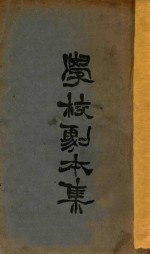 學校劇本集